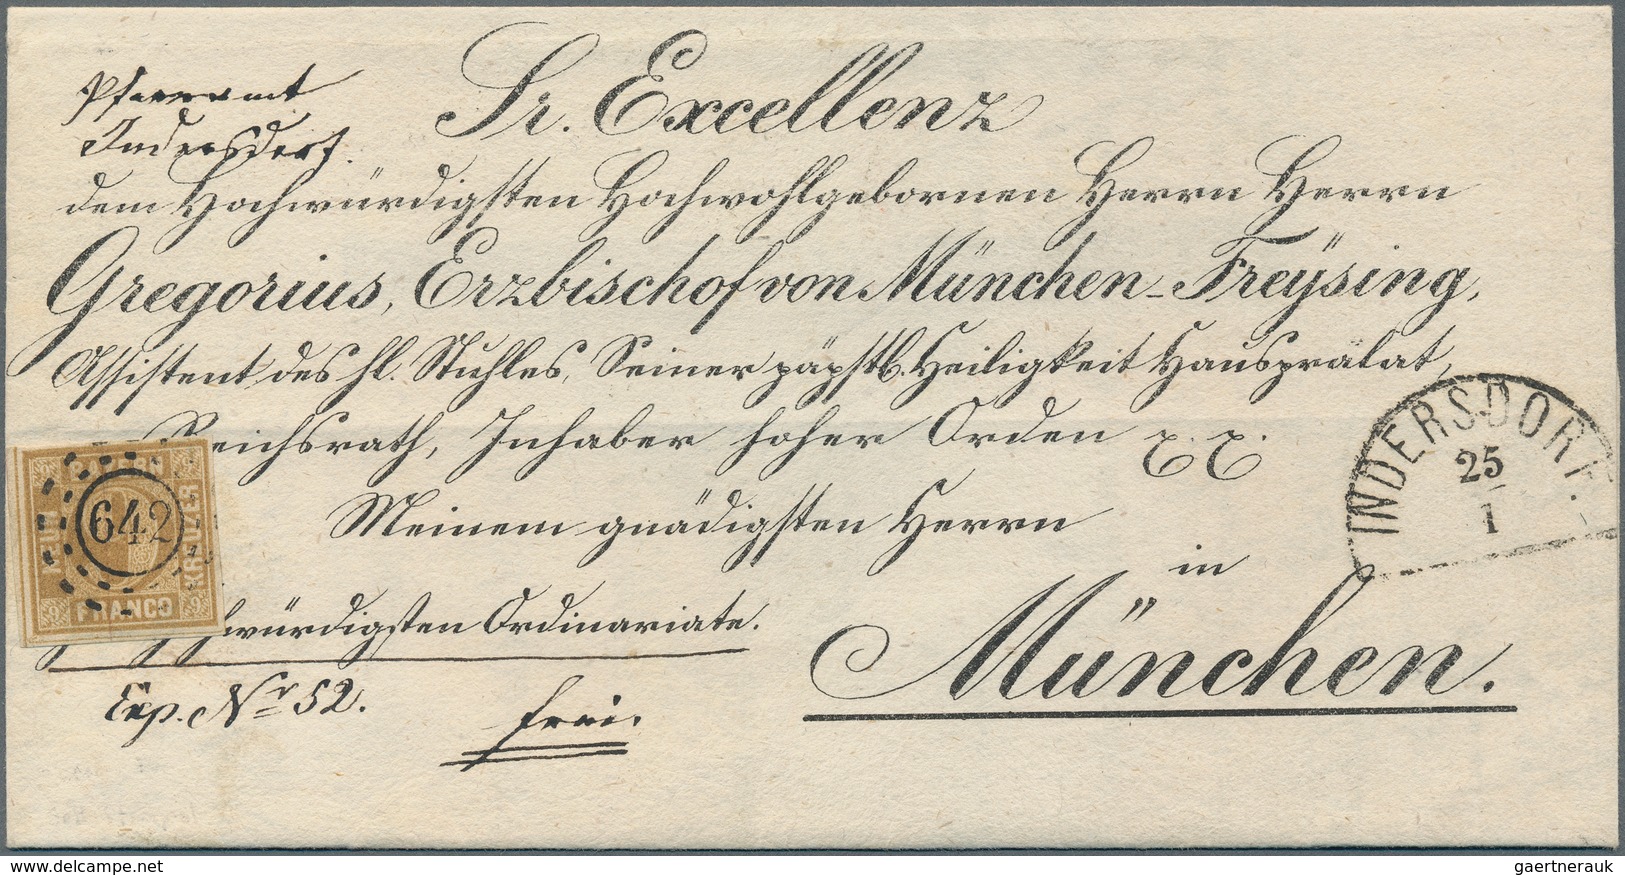 Pfarramt
Indersdorf.
Sr. Excellenz
dem Hochwürdigsten Hochwohlgebornen Herrn Herrn
Gregorius, Erzbischof von München-Freÿsing,
Assistent des hl. Stuhles, Seiner päpstl. Heiligkeit Hausprälat,
Reichsrath, Inhaber hoher Orden x. x.
Meinem gnädigsten Herrn
in
München.
würdigsten Ordinariate.
Exp. Nr 52.
frei.
642
KREUZER
FRANCO
9 9
INDERSDORF.
25
1
www.delcampe.net
gaertnerauk